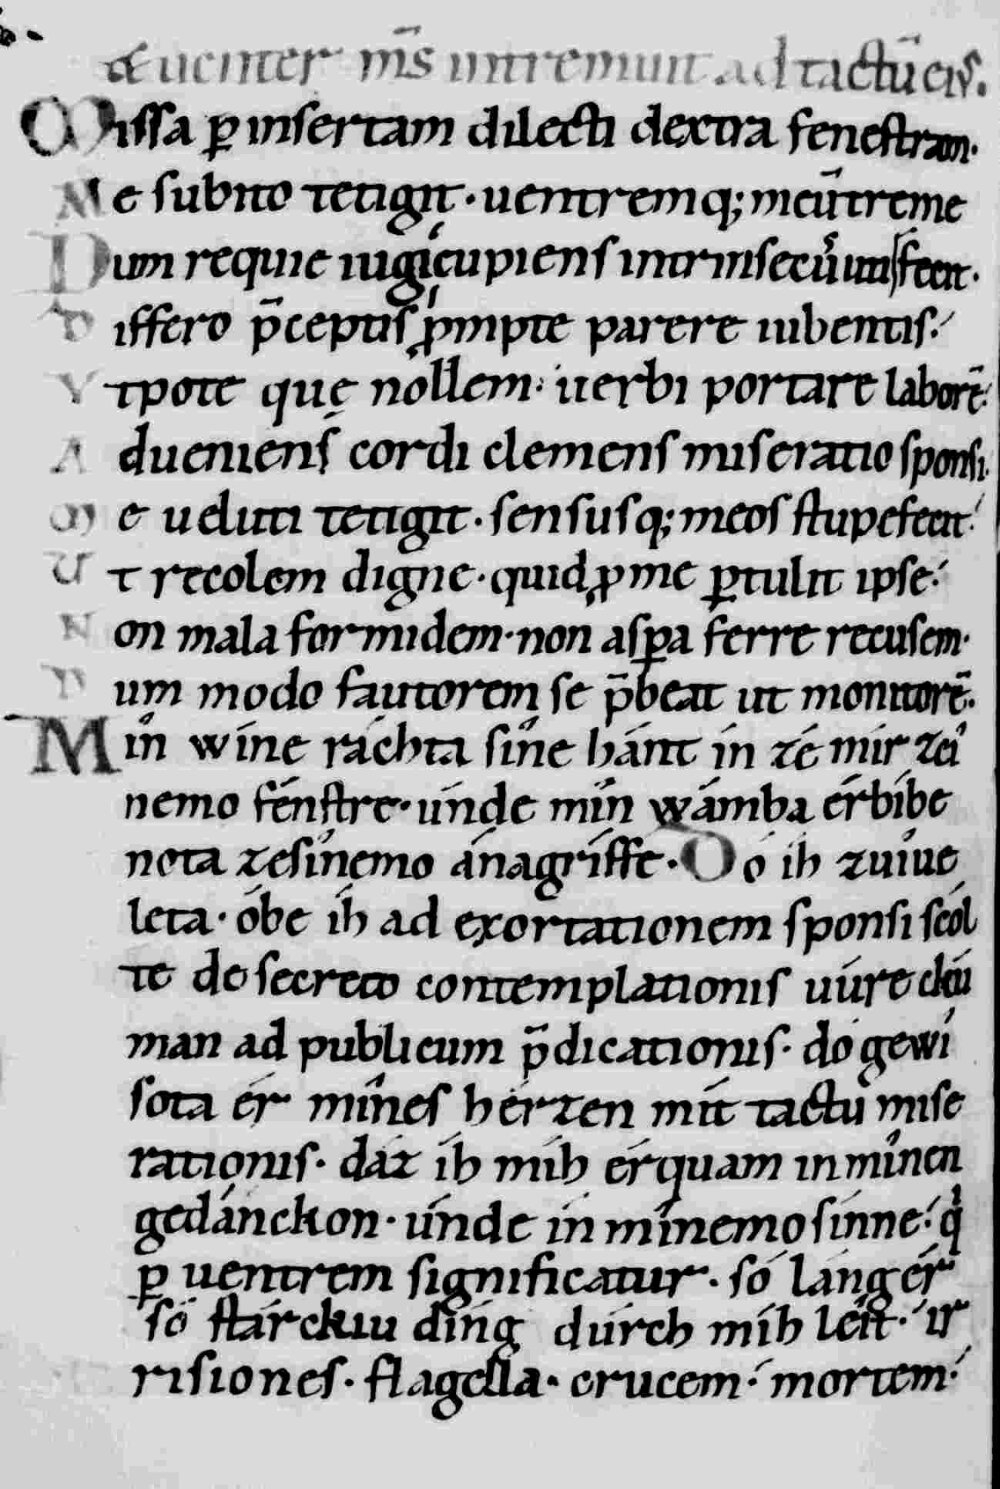 & uenter m̄s intremuit ad tactū eiꝰ.
Missa ꝑ insertam dilecti dextra fenestram·
Me subito tetigit· uentremq; meū treme
Dum requie iugi cupiens intrinsecus uti / fecit·
Differo p̄ceptis ꝓmpte parere iubentis:
Vtpote quę nollem· uerbi portare laborē·
Adueniens cordi clemens miseratio sponsi
Meueluti tetigit· sensusq; meos stupefecit·
Ut recolem digne· quid ꝓ me ꝑtulit ipse·
Non mala formidem· non aspꝑa ferre recusem·
Dum modo fautorem se p̄beat ut monitorē·
Mîn wíne ráchta sîne hánt ín zé mir zeî
nemo fénstre· únde mîn wámba érbíbe
nota zesînemo ánagríffe· Dó íh zuîue
leta· óbe íh ad exortationem sponsi scól
te de secreto contemplationis uúre déû
man ad publicum p̄dicationis· dó gewí
sota ér mînes hérzen mít tactu mise
rationis· dáz íh míh érquam in mînen
gedánckon· únde in mînemo sínne· q̇
ꝑ uentrem significatur· só láng ér
só stárckiu díng dúrch míh léît· ir
risiones· flagella· crucem· mortem·